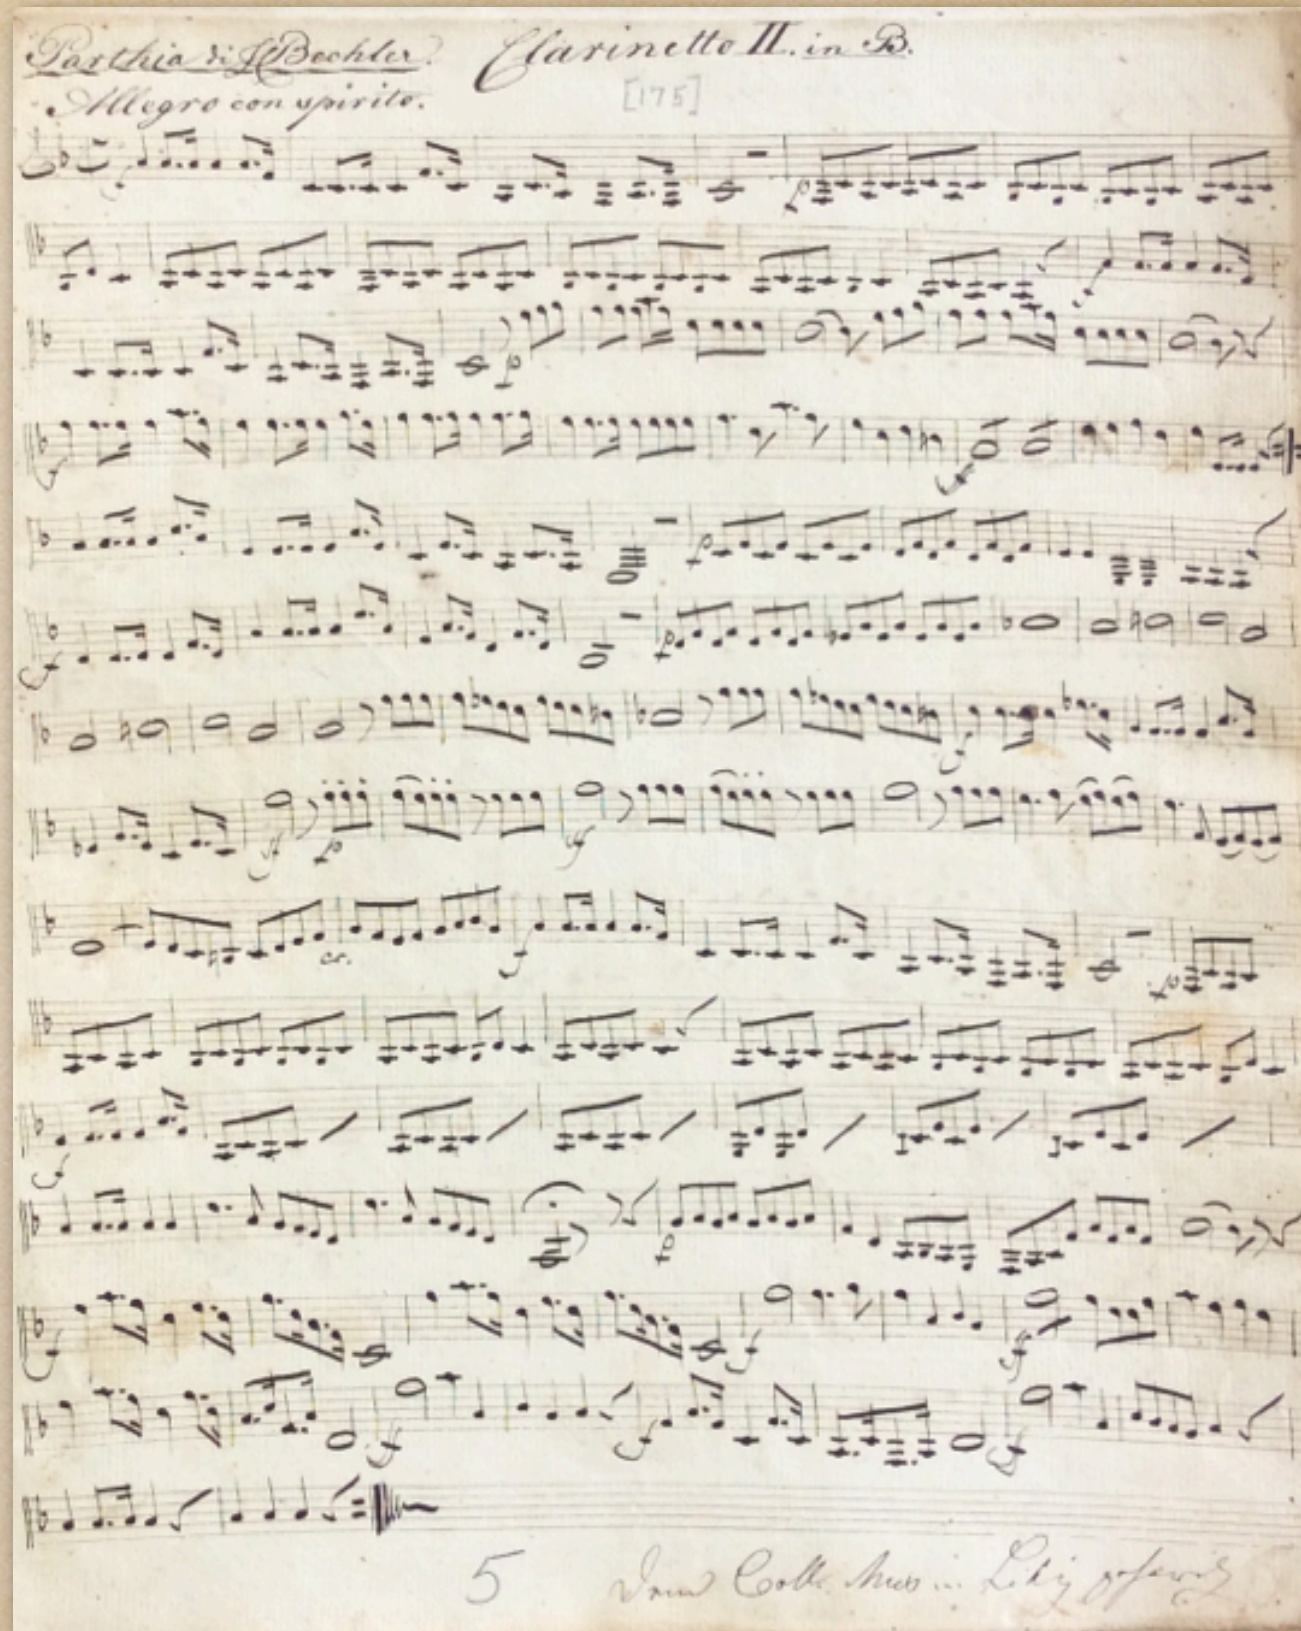 Parthia di J C Bechler. Clarinetto II. in B.
Allegro con spirito.
[175]
5
Dem Coll. Mus in Litiz